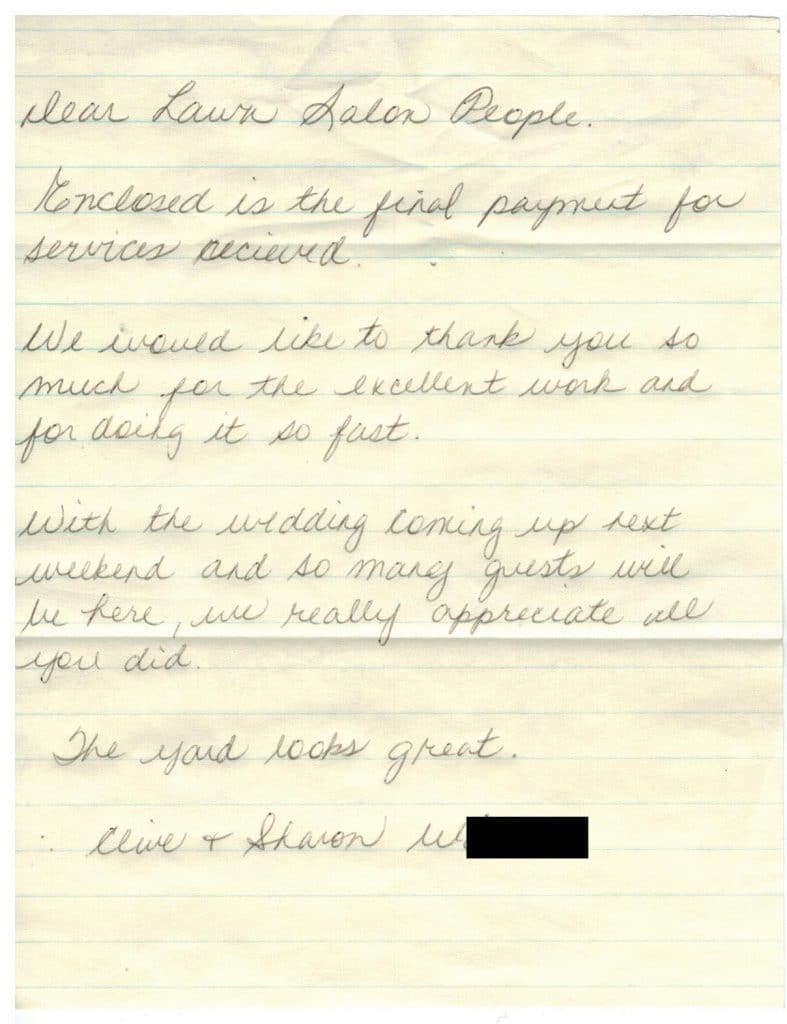 Dear Lawn Salon People.
Enclosed is the final payment for
services recieved.
We would like to thank you so
much for the excellent work and
for doing it so fast.
With the wedding coming up next
weekend and so many guests will
be here, we really appreciate all
you did.
The yard looks great.
Clive + Sharon W